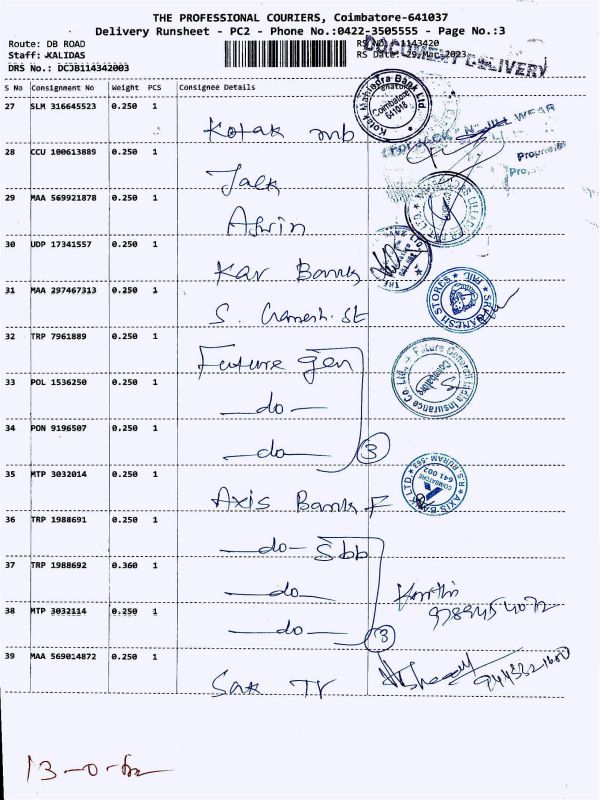 THE PROFESSIONAL COURIERS, Coimbatore-641037
Delivery Runsheet - PC2 - Phone No.:0422-3505555 - Page No.:3
Route: DB ROAD
Staff: KALIDAS
DRS No.: DCJB114342003
RS 1143420
RS Date: 29-Mar-2023
DOCUMENT DELIVERY
S No Consignment No Weight PCS Consignee Details
27 SLM 316645523 0.250 1 Kotak mb
Kotak Mahindra Bank Ltd. Coimbatore 641018
WEAR
28 CCU 100613889 0.250 1 Jack
Proprietor
29 MAA 569921878 0.250 1
30 UDP 17341557 0.250 1 Kar Bank
31 MAA 297467313 0.250 1 S. Gamesh. St
SRI GANESH STORES
32 TRP 7961889 0.250 1 Future Gen
Future Generali India Insurance Co. Ltd., Coimbatore
33 POL 1536250 0.250 1 —do—
34 PON 9196507 0.250 1 —do— 3
35 MTP 3032014 0.250 1 Axis Bank F
AXIS BANK LTD. R.S. PURAM COIMBATORE 641 002
36 TRP 1988691 0.250 1 —do— Sbb
37 TRP 1988692 0.360 1 —do—
38 MTP 3032114 0.250 1 —do— 3
39 MAA 569014872 0.250 1 Sak TV